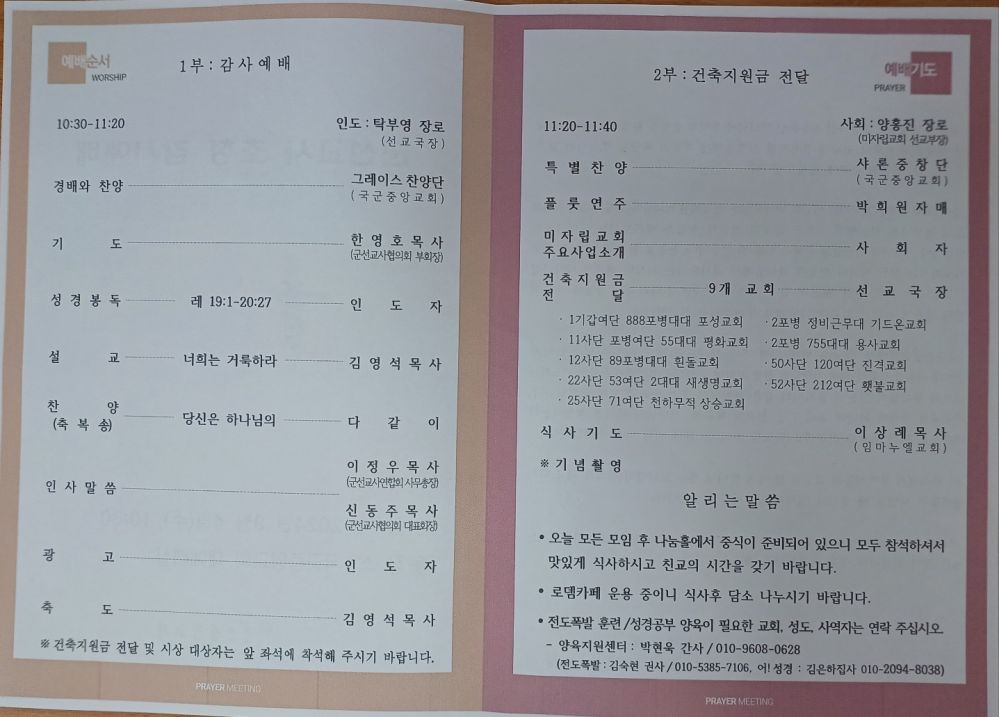 예배순서
WORSHIP
1부 : 감사예배
10:30-11:20 인도 : 탁부영 장로
(선교국장)
경배와 찬양 그레이스 찬양단
(국군중앙교회)
기 도 한영호목사
(군선교사협의회 부회장)
성경봉독 레 19:1-20:27 인 도 자
설 교 너희는 거룩하라 김영석목사
찬 양 당신은 하나님의 다 같 이
(축 복 송)
인사말씀 이정우목사
(군선교사연합회 사무총장)
신동주목사
(군선교사협의회 대표회장)
광 고 인 도 자
축 도 김영석목사
※ 건축지원금 전달 및 시상 대상자는 앞 좌석에 착석해 주시기 바랍니다.
PRAYER MEETING
예배기도
PRAYER
2부 : 건축지원금 전달
11:20-11:40 사회 : 양홍진 장로
(미자립교회 선교부장)
특별찬양 샤론중창단
(국군중앙교회)
플룻연주 박희원자매
미자립교회
주요사업소개 사 회 자
건축지원금
전 달 9개 교회 선교국장
· 1기갑여단 888포병대대 포성교회 · 2포병 정비근무대 기드온교회
· 11사단 포병여단 55대대 평화교회 · 2포병 755대대 용사교회
· 12사단 89포병대대 흰돌교회 · 50사단 120여단 진격교회
· 22사단 53여단 2대대 새생명교회 · 52사단 212여단 횃불교회
· 25사단 71여단 천하무적 상승교회
식사기도 이상례목사
(임마누엘교회)
※ 기념촬영
알리는말씀
• 오늘 모든 모임 후 나눔홀에서 중식이 준비되어 있으니 모두 참석하셔서
맛있게 식사하시고 친교의 시간을 갖기 바랍니다.
• 로뎀카페 운용 중이니 식사후 담소 나누시기 바랍니다.
• 전도폭발 훈련/성경공부 양육이 필요한 교회, 성도, 사역자는 연락 주십시오.
- 양육지원센터 : 박현욱 간사 / 010-9608-0628
(전도폭발 : 김숙현 권사 / 010-5385-7106, 어!성경 : 김은하집사 010-2094-8038)
PRAYER MEETING